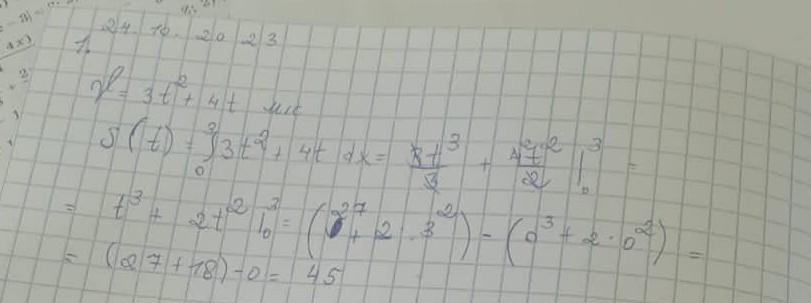 24. 10. 2023
1.
V = 3t² + 4t м/с
S(t) = ∫₀³ 3t² + 4t dx = 3t³/3 + 4t²/2 |₀³ =
= t³ + 2t² |₀³ = (27 + 2 · 3²) - (0³ + 2 · 0²) =
= (27 + 18) - 0 = 45